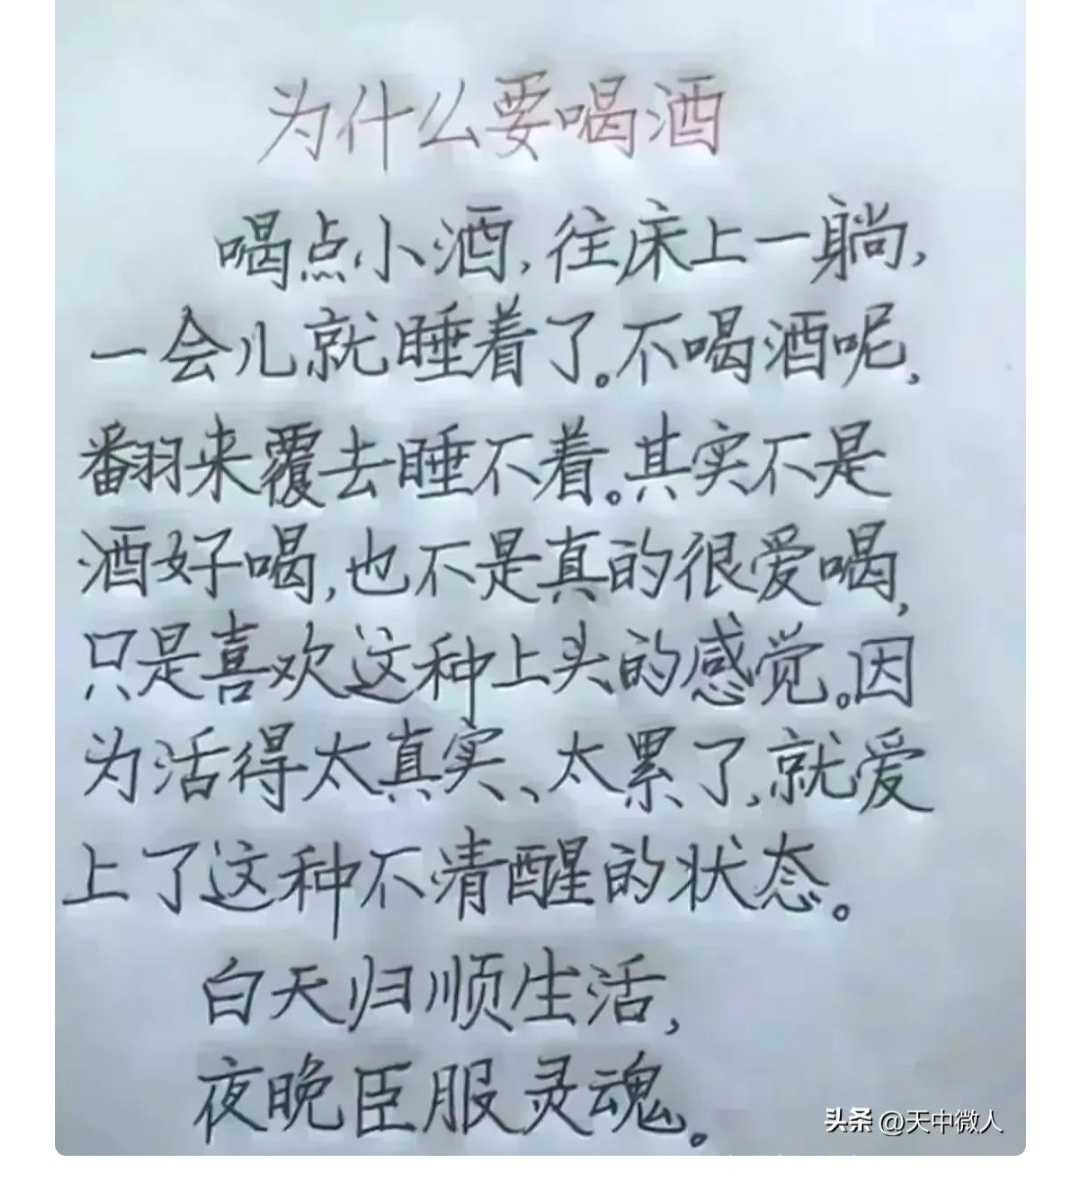 为什么要喝酒
喝点小酒,往床上一躺,
一会儿就睡着了。不喝酒呢,
翻来覆去睡不着。其实不是
酒好喝,也不是真的很爱喝,
只是喜欢这种上头的感觉。因
为活得太真实、太累了,就爱
上了这种不清醒的状态。
白天归顺生活,
夜晚臣服灵魂。
头条 @天中微人